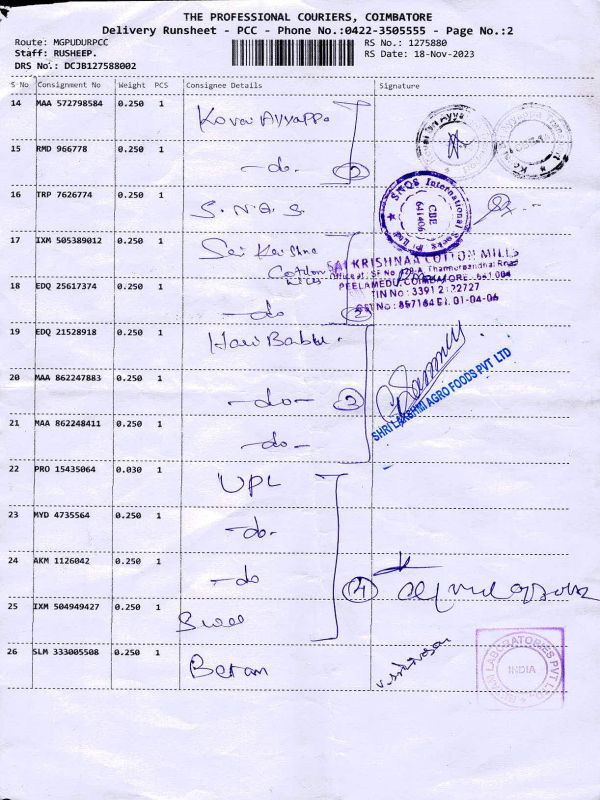 THE PROFESSIONAL COURIERS, COIMBATORE
Delivery Runsheet - PCC - Phone No.:0422-3505555 - Page No.:2
Route: MGPUDURPCC
RS No.: 1275880
Staff: RUSHEEP.
RS Date: 18-Nov-2023
DRS No.: DCJB127588002
S No Consignment No Weight PCS Consignee Details Signature
14 MAA 572798584 0.250 1 Kovai Ayyappa
15 RMD 966778 0.250 1 -do. 2
16 TRP 7626774 0.250 1 S.N.Q.S.
SNQS International Socks P Ltd
CBE
641406
17 IXM 505389012 0.250 1 Sai Krishna
Cotton
Mills
SAI KRISHNAA COTTON MILLS
PEELAMEDU, COIMBATORE - 641 004
TIN No : 33912122727
CST No : 857184 Dt. 01-04-06
18 EDQ 25617374 0.250 1 -do 2
19 EDQ 21528918 0.250 1 Hari Babu.
20 MAA 862247883 0.250 1 -do- 3
SHRI LAKSHMI AGRO FOODS PVT LTD
21 MAA 862248411 0.250 1 -do-
22 PRO 15435064 0.030 1 UPL
23 MYD 4735564 0.250 1 -do-
24 AKM 1126042 0.250 1 -do 4
25 IXM 504949427 0.250 1
26 SLM 333005508 0.250 1
LABORATORIES PVT LTD
INDIA